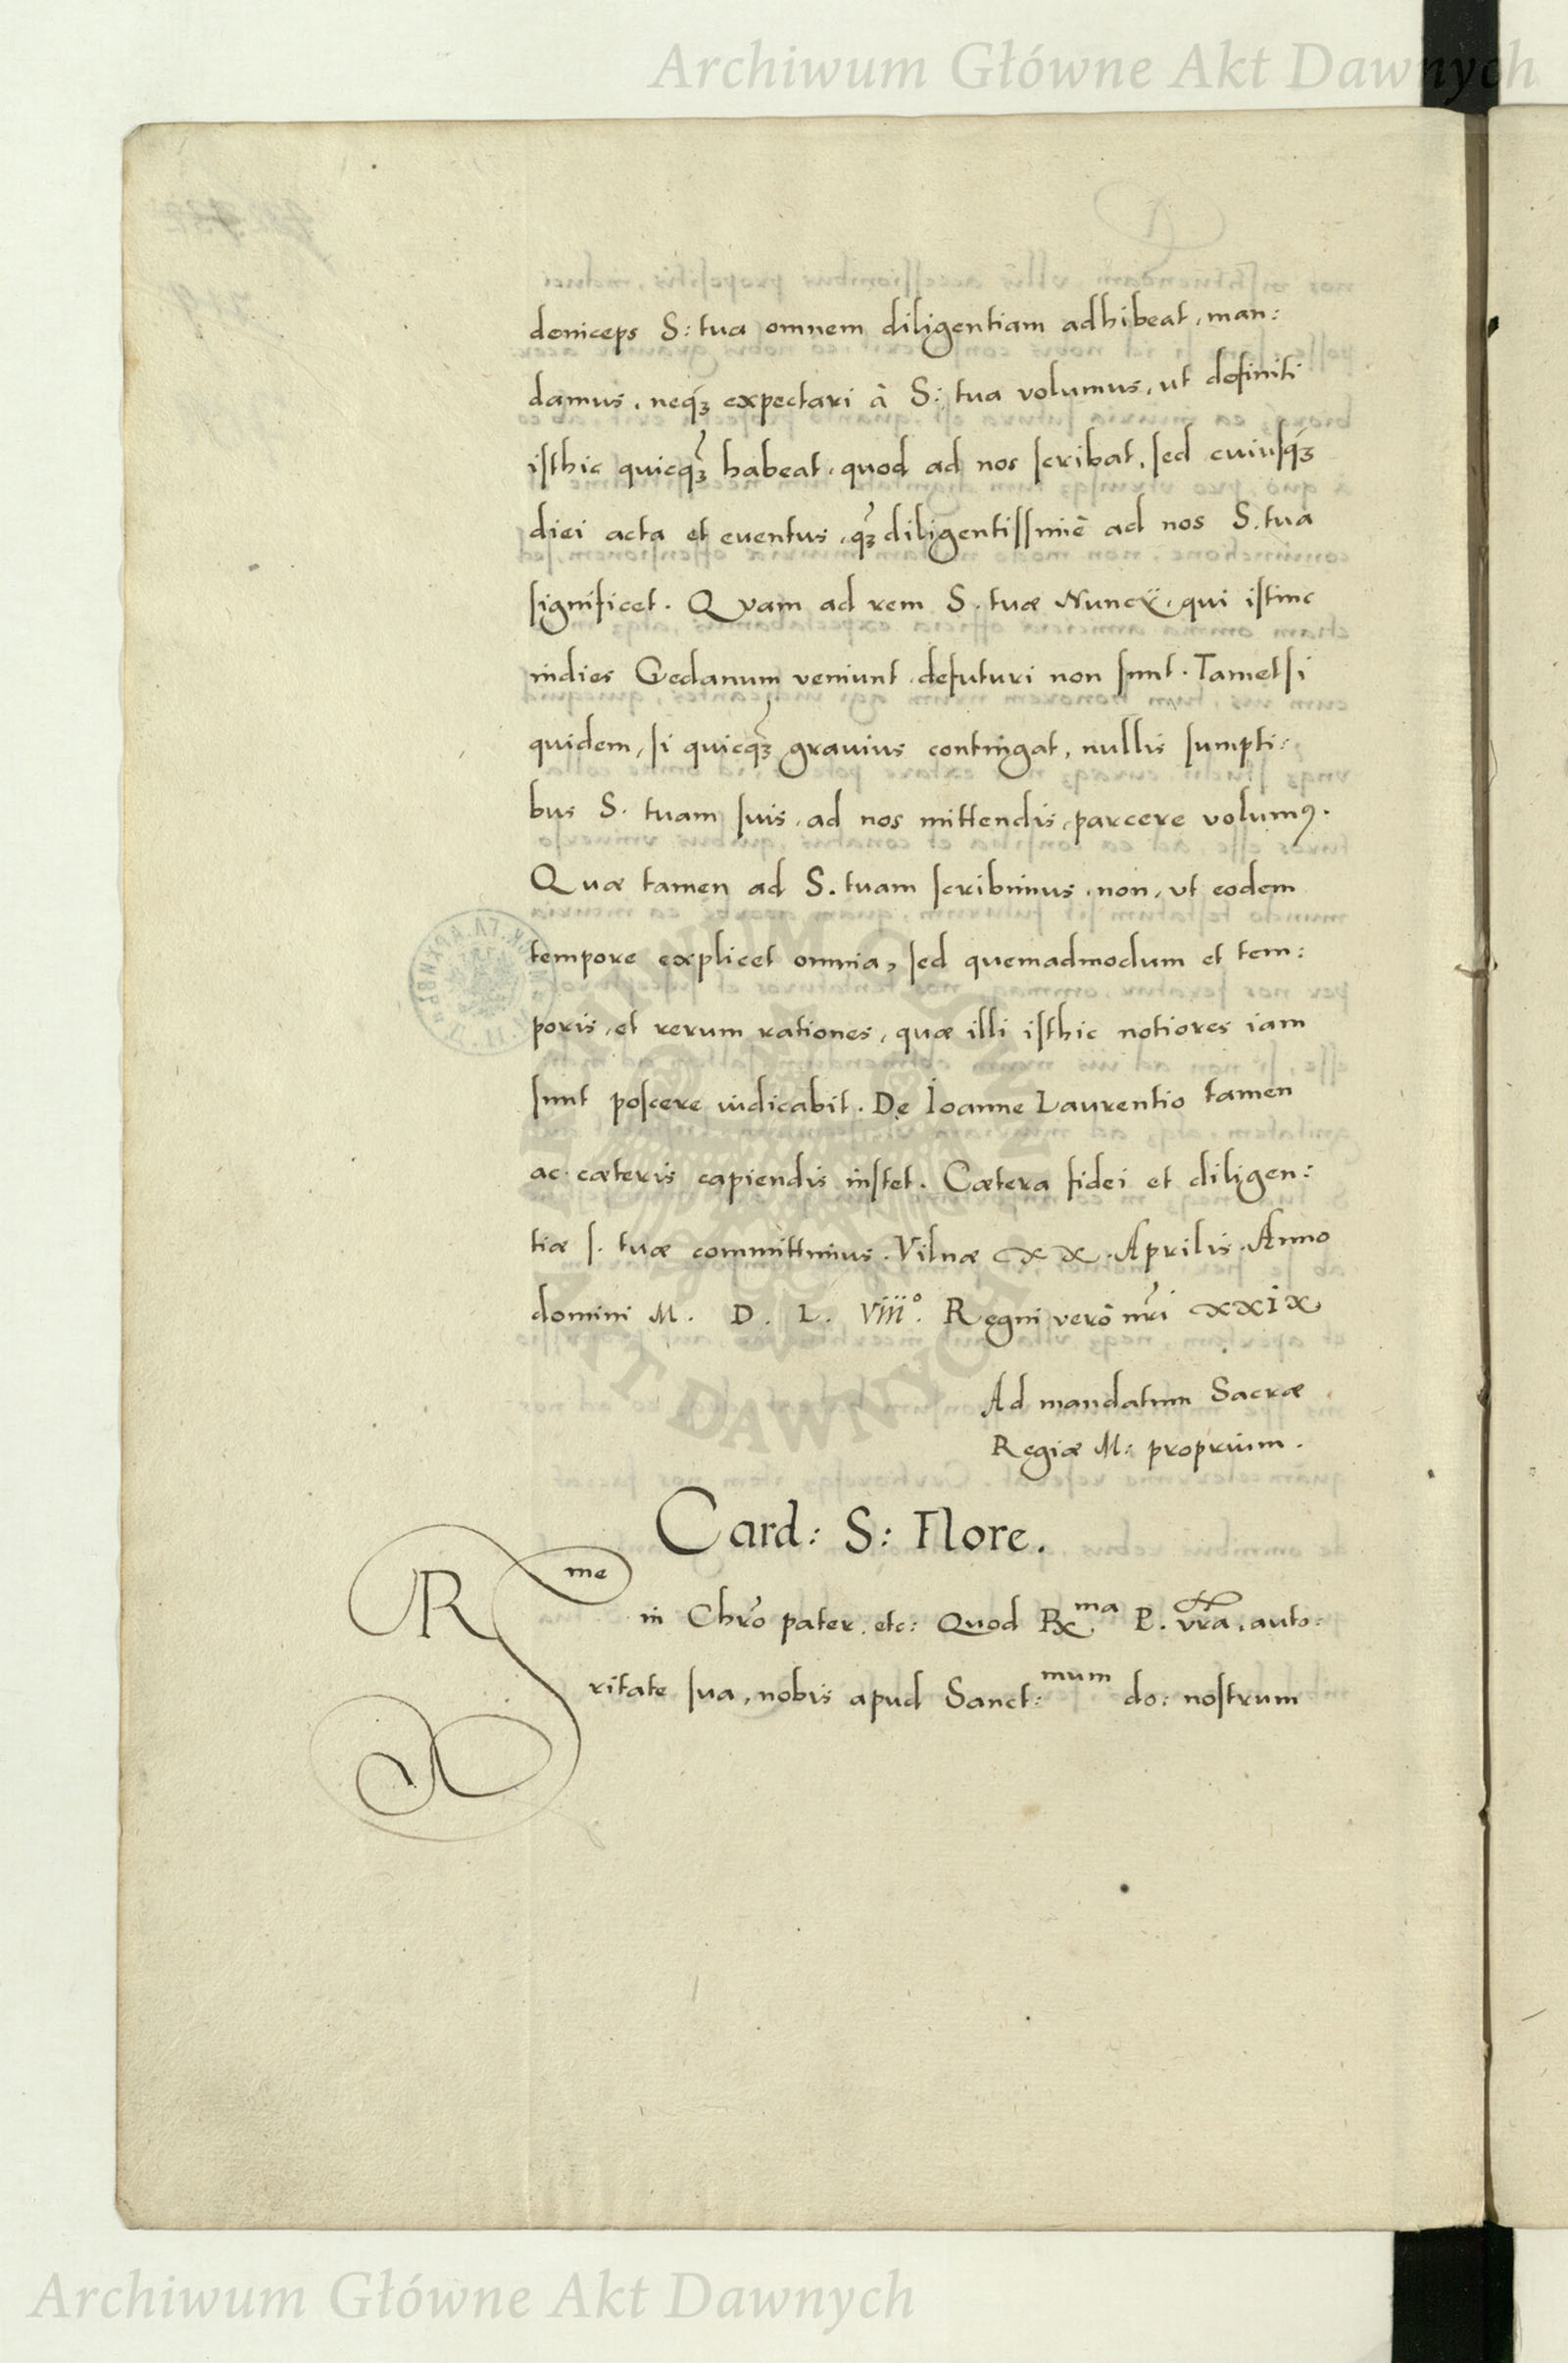 Archiwum Główne Akt Dawnych
deniceps S: tua omnem diligentiam adhibeat, man:
damus, neqꝫ expectari à S: tua volumus, ut definiti
iſthic quicqꝫ habeat, quod ad nos ſcribat, ſed cuiuſqꝫ
diei acta et euentus, qꝫ diligentiſſimè ad nos S. tua
ſignificet. Quam ad rem S. tuæ Nuncÿ, qui iſtinc
indies Gedanum veniunt, defuturi non ſunt. Tametſi
quidem, ſi quicqꝫ grauius contingat, nullis ſumpti:
bus S. tuam ſuis, ad nos mittendis, parcere volumꝰ.
Quæ tamen ad S. tuam ſcribimus, non, vt eodem
tempore explicet omnia, ſed quemadmodum et tem:
poris, et rerum rationes, quæ illi iſthic notiores iam
ſunt poſcere iudicabit. De Ioanne Laurentio tamen
ac cæteris capiendis inſtet. Cætera fidei et diligen:
tiæ ſ. tuæ committimus. Vilnæ XX. Aprilis. Anno
domini M. D. L. Viii°. Regni verò nr̃i XXIX
Ad mandatum Sacræ
Regiæ M: proprium.
Card: S: Flore.
R me
in Chr̃o pater. etc: Quod Rx ma P. vr̃a, auto:
ritate ſua, nobis apud Sanct: mum do: noſtrum
ARCHIWUM GŁÓWNE AKT DAWNYCH
Archiwum Główne Akt Dawnych